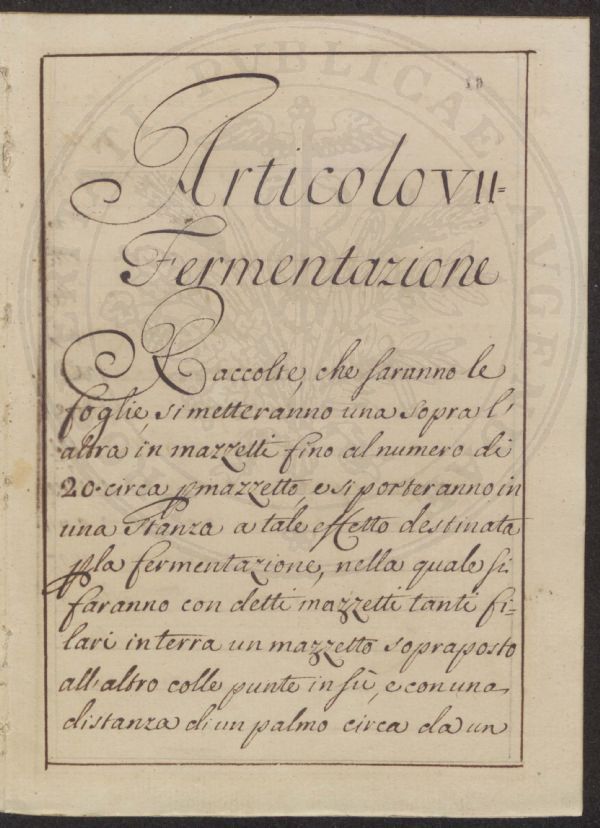 Articolo VII=
Fermentazione
Raccolte, che saranno le
foglie, si metteranno una sopra l'
altra in mazzetti fino al numero di
20. circa p mazzetto, e si porteranno in
una Stanza a tale effetto destinata
p la fermentazione, nella quale si
faranno con detti mazzetti tanti fi-
lari in terra un mazzetto sopraposto
all'altro colle punte in sù, e con una
distanza di un palmo circa da un
VERITATI PUBLICAE AUGEN